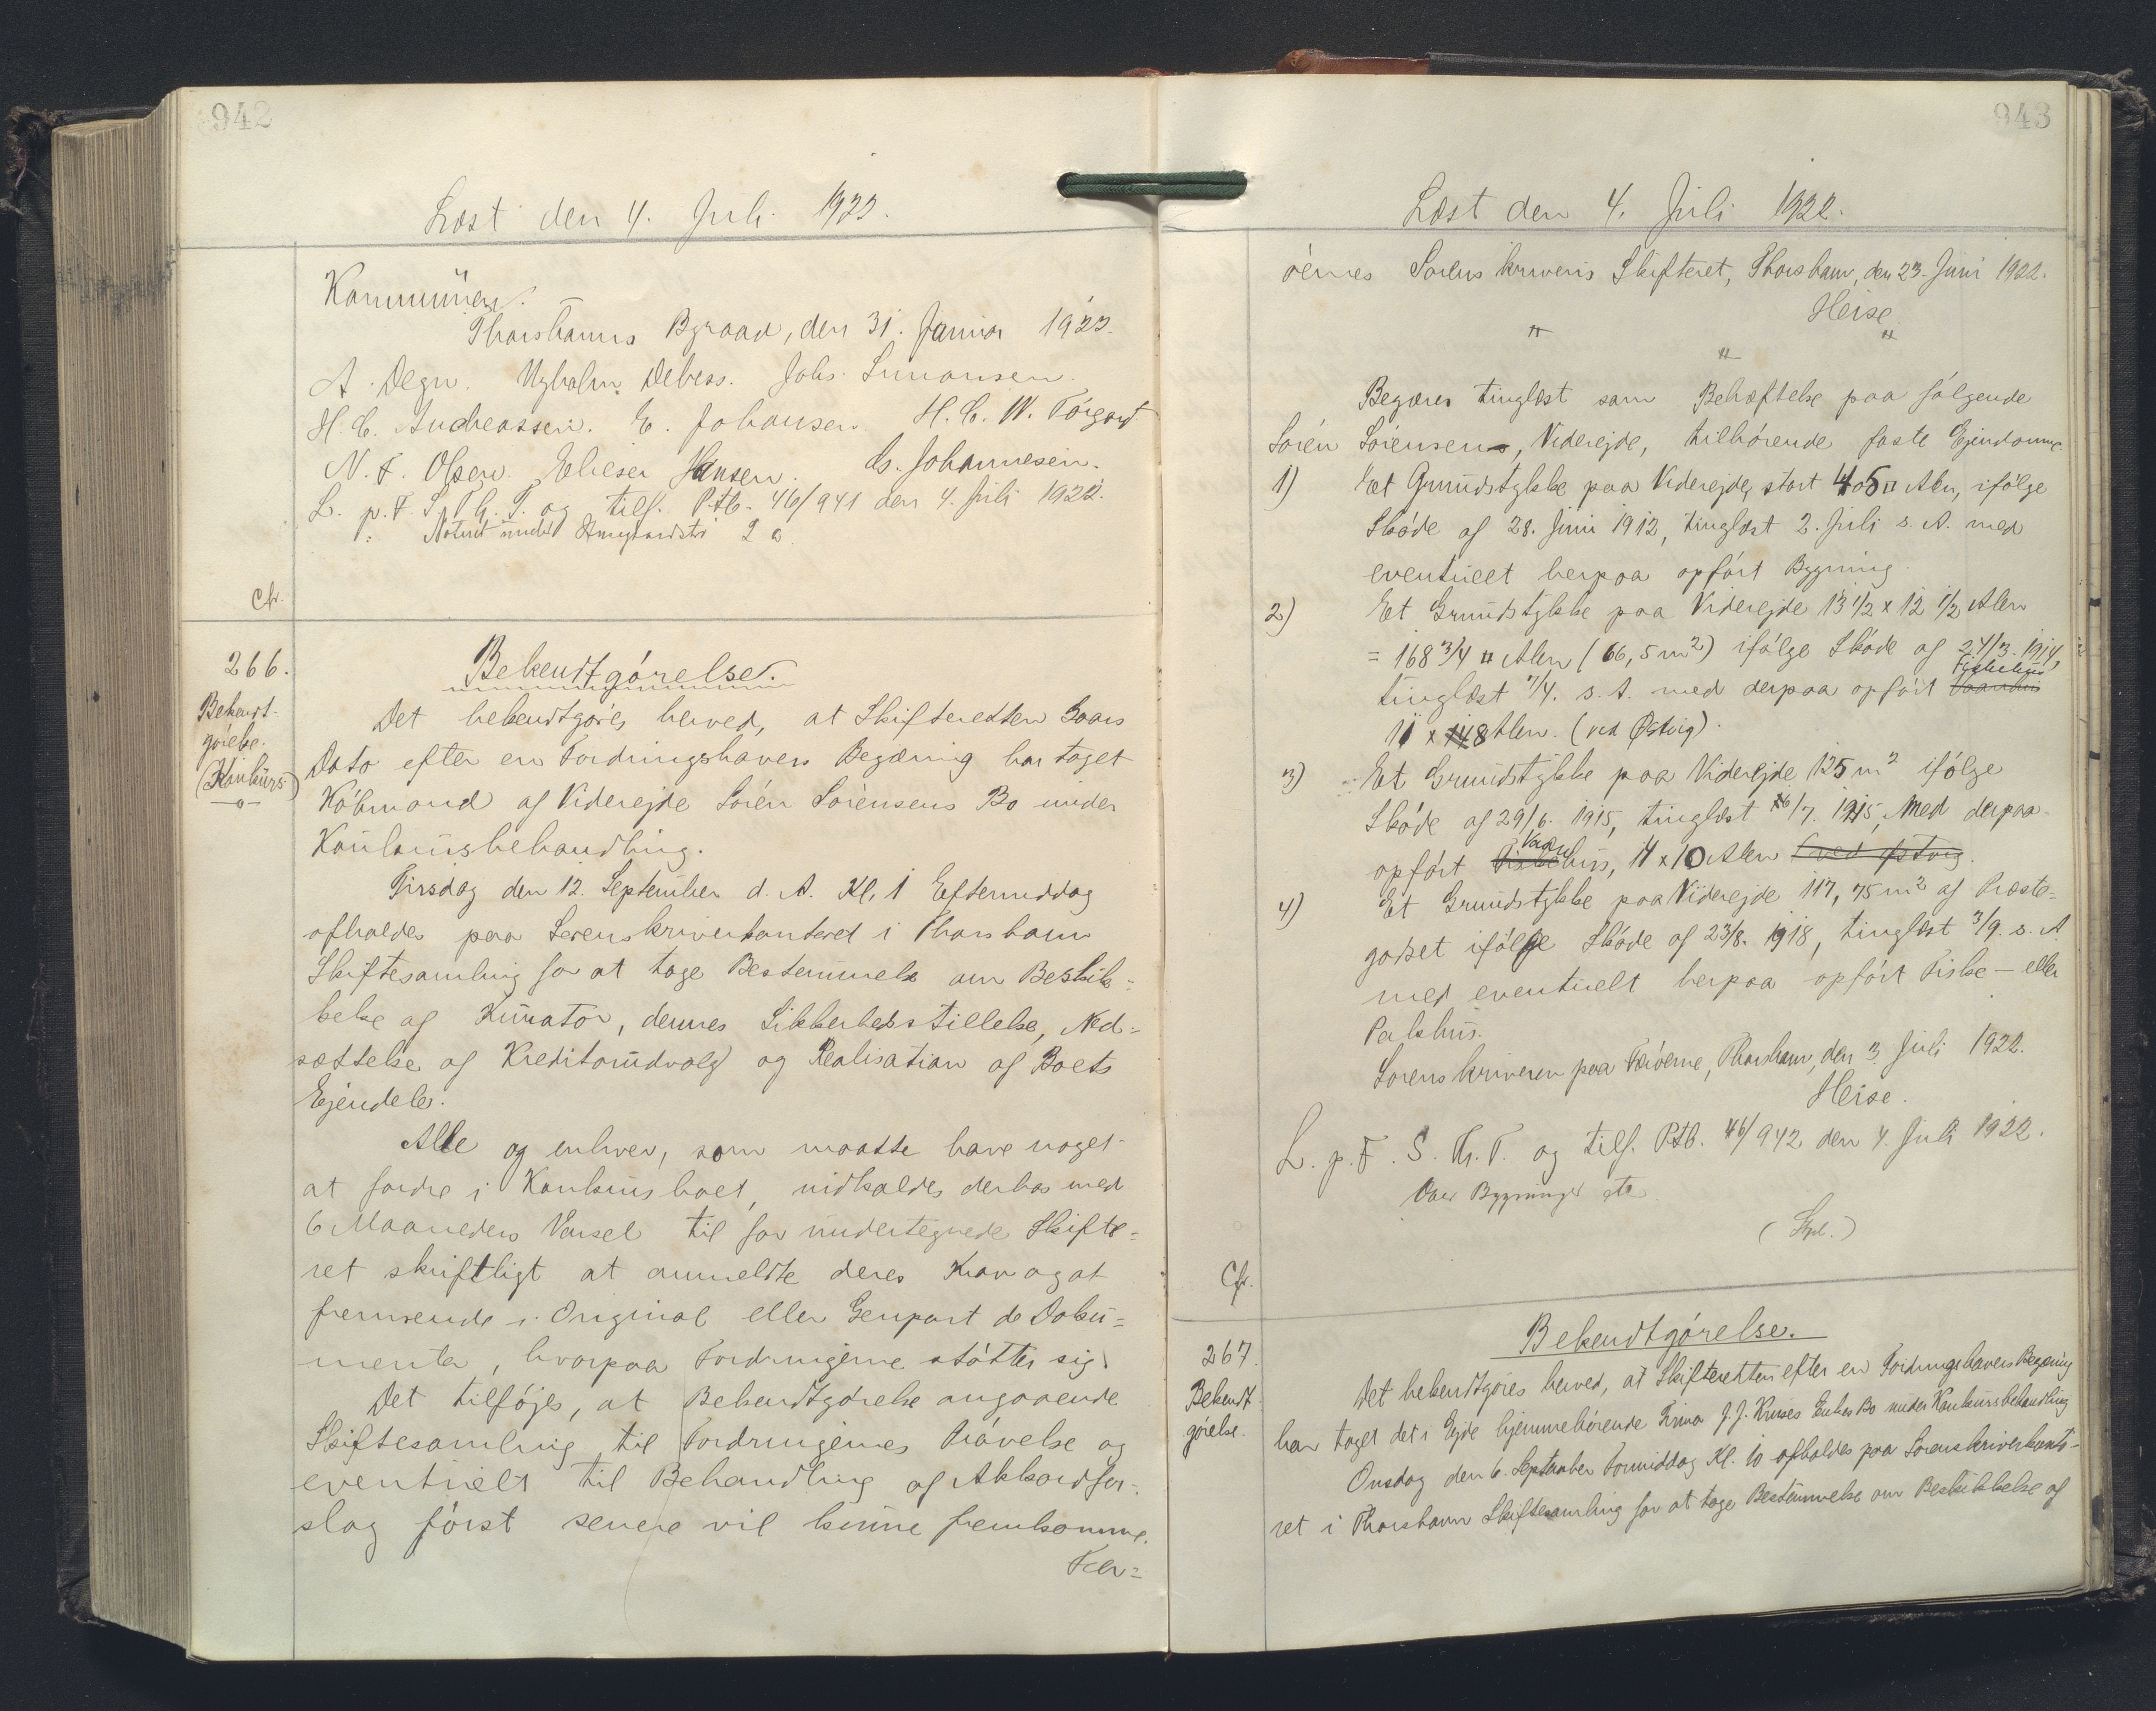 942
Læst den 4. Juli 1922.
Kommunen.
Thorshavns Byraad, den 31. Januar 1922.
A. Degn. Debess. Johs. Simonsen.
H. C. Andreassen. E. Johansen. H. C. W. Tórgarð
N. F. Olsen. Elieser Hansen. Johannesen.
L. p. F. S. Th. T. og tilf. Ptb. 46/941 den 4. Juli 1922.
Noteret
Cfr.
266.
Bekendt-
gørelse.
(Konkurs)
Bekendtgørelse.
Det bekendtgøres herved, at Skifteretten Gaars
Dato efter en Fordringshavers Begæring har taget
Købmand af Viderejde Sørén Sørensens Bo under
Konkursbehandling.
Tirsdag den 12. September d. A. Kl. 1 Eftermiddag
afholdes paa Sorenskriverkontoret i Thorshavn
Skiftesamling for at tage Bestemmelse om Beskik-
kelse af Kurator, dennes Sikkerhedsstillelse, Ned-
sættelse af Kreditorudvalg og Realisation af Boets
Ejendele.
Alle og enhver, som maatte have noget
at fordre i Konkursboet, indkaldes derhos med
6 Maaneders Varsel til for undertegnede Skifte-
ret skriftligt at anmelde deres Krav og at
fremsende i Original eller Genpart de Doku-
menter, hvorpaa Fordringerne støtter sig.
Det tilføjes, at Bekendtgørelse angaaende
Skiftesamling til Fordringernes Prøvelse og
eventuelt til Behandling af Akkordfor-
slag først senere vil kunne fremkomme.
Fær-
943
Læst den 4. Juli 1922.
øernes Sorenskriveris Skifteret, Thorshavn, den 23. Juni 1922.
Heise
Begæres tinglæst som Behæftelse paa følgende
Sørén Sørensen, Viderejde, tilhørende faste Ejendomme
1) Et Grundstykke paa Viderejde, stort 405 □ Alen, ifølge
Skøde af 28. Juni 1912, tinglæst 2. Juli s. A. med
eventuelt herpaa opført Bygning.
2) Et Grundstykke paa Viderejde 13 1/2 x 12 1/2 Alen
= 168 3/4 □ Alen (66,5 m²) ifølge Skøde af 24/3. 1914,
tinglæst 7/4. s. A. med derpaa opført Fiskehus
11 x 8 Alen. (ved Østvig).
3) Et Grundstykke paa Viderejde 125 m² ifølge
Skøde af 29/6. 1915, tinglæst 6/7. 1915, Med derpaa
opført Vaanhus, 11 x 10 Alen (ved Østvig.
4) Et Grundstykke paa Viderejde 117,75 m² af Præste-
godset ifølge Skøde af 23/8. 1918, tinglæst 3/9. s. A
med eventuelt herpaa opført Fiske- eller
Pakhus.
Sorenskriveren paa Færøerne, Thorshavn, den 3. Juli 1922.
Heise.
L. p. F. S. Th. T. og tilf. Ptb. 46/942 den 4. Juli 1922.
Bygninger
Cfr.
267.
Bekendt
gørelse.
Bekendtgørelse.
Det bekendtgøres herved, at Skifteretten efter en Fordringshavers Begæring
har taget det i Ejde hjemmehørende Firma J. J. Kruses Enkes Bo under Konkursbehandling
Onsdag den 6. September Formiddag Kl. 10 afholdes paa Sorenskriverkonto-
ret i Thorshavn Skiftesamling for at tage Bestemmelse om Beskikkelse af